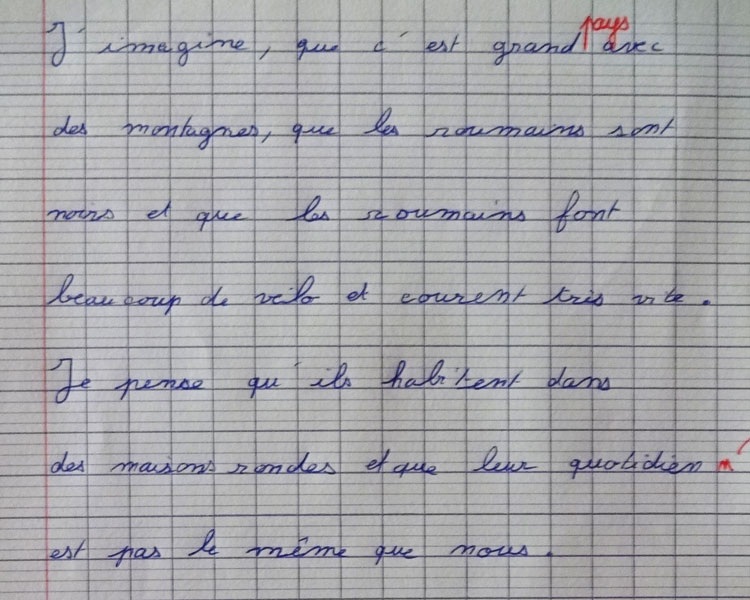 J'imagine, que c'est grand pays avec
des montagnes, que les roumains sont
noirs et que les roumains font
beaucoup de vélo et courent très vite.
Je pense qu'ils habitent dans
des maisons rondes et que leur quotidien n'
est pas le même que nous.